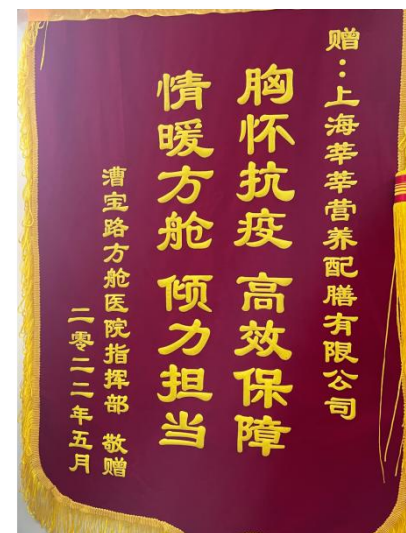 赠：上海莘莘营养配膳有限公司
胸怀抗疫 高效保障
情暖方舱 倾力担当
漕宝路方舱医院指挥部 敬赠
二零二二年五月